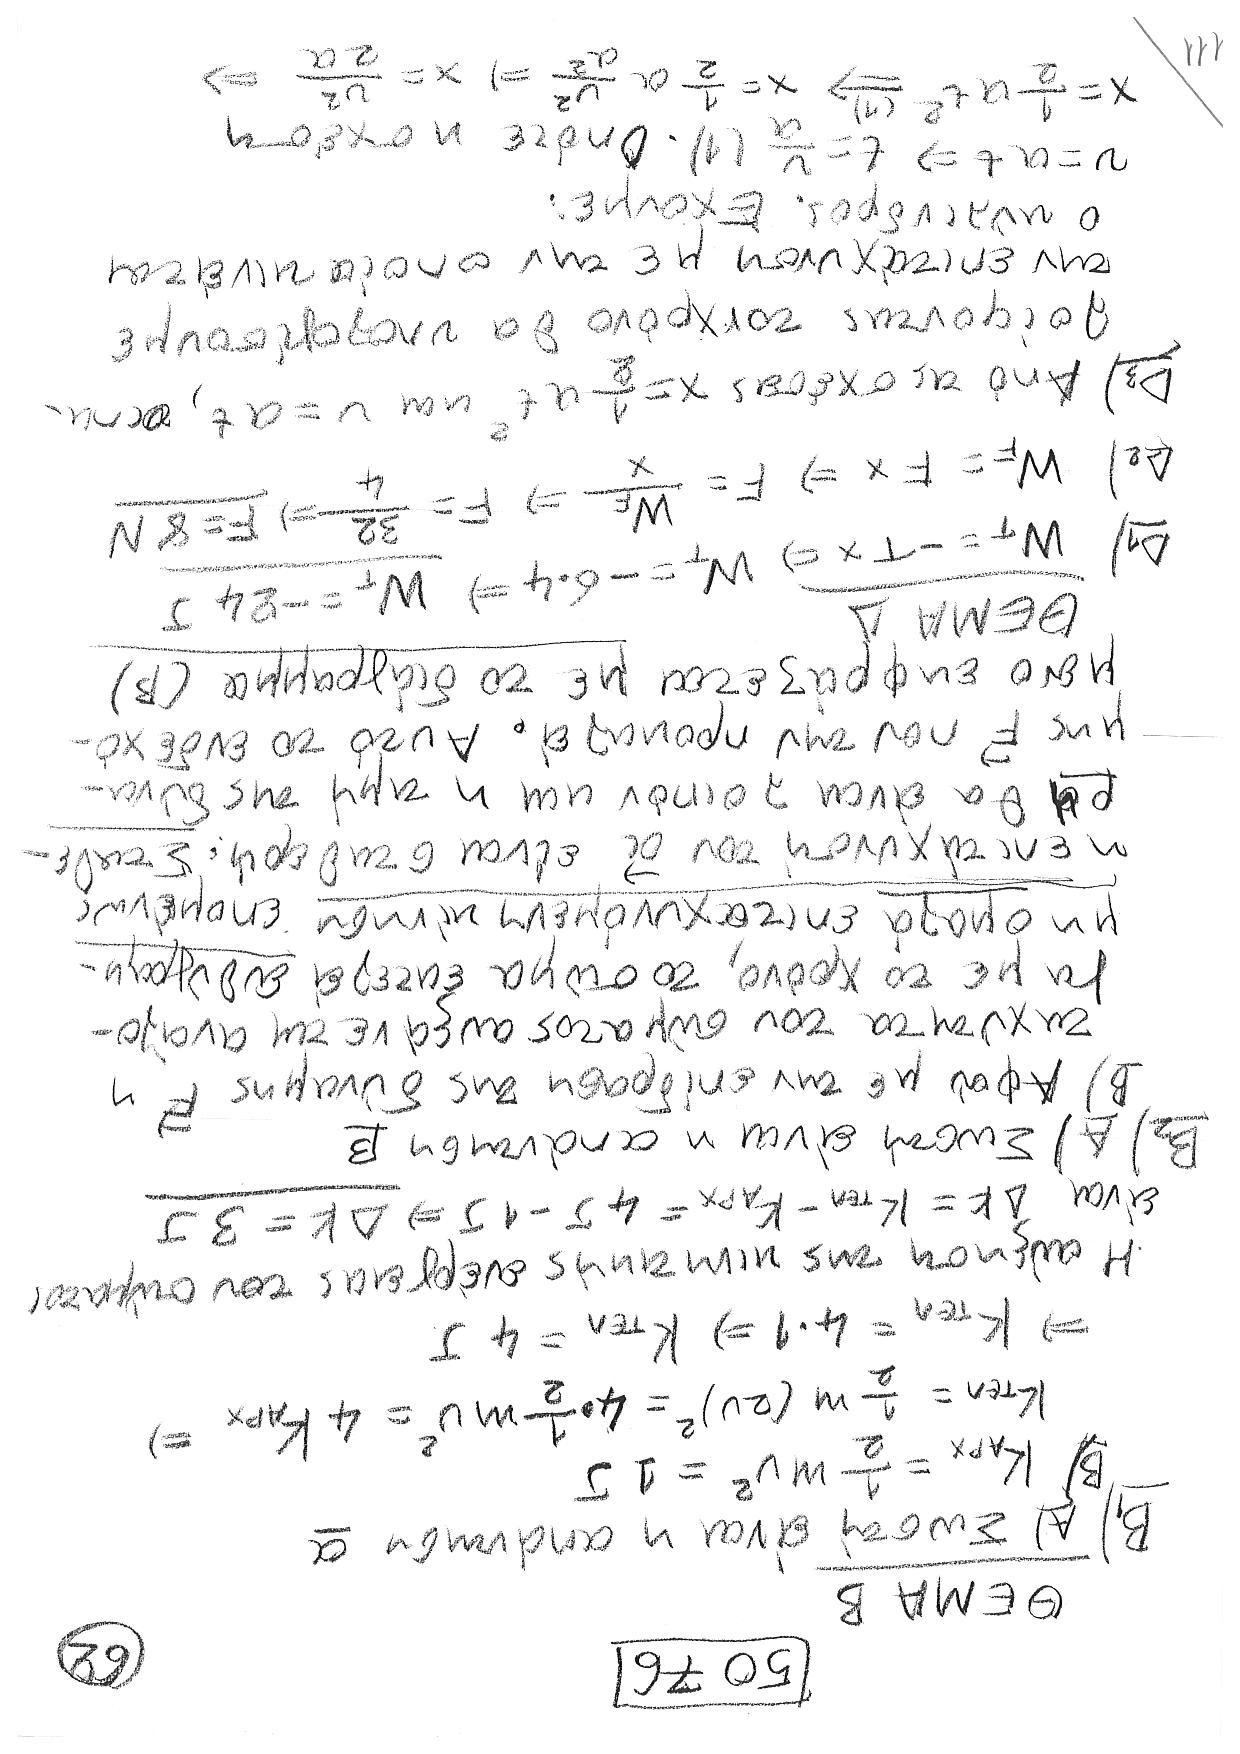 5076
62
ΘΕΜΑ Β
Β1) Α) Σωστή είναι η απάντηση α
Β) Κ_ΑΡΧ = 1/2 mυ² = 1 J
Κ_ΤΕΛ = 1/2 m (2υ)² = 4·1/2 mυ² = 4 Κ_ΑΡΧ ⇒
⇒ Κ_ΤΕΛ = 4·1 ⇒ Κ_ΤΕΛ = 4 J
Η αύξηση της κινητικής ενέργειας του σώματος
είναι ΔΚ = Κ_ΤΕΛ - Κ_ΑΡΧ = 4J - 1J ⇒ ΔΚ = 3 J
Β2) Α) Σωστή είναι η απάντηση Β
Β) Αφού με την επίδραση της δύναμης F η
ταχύτητα του σώματος αυξάνεται ανάλο-
γα με το χρόνο, το σώμα εκτελεί ευθύγραμ-
μη ομαλά επιταχυνόμενη κίνηση επομένως
η επιτάχυνση του α είναι σταθερή. Σταθε-
ρή θα είναι λοιπόν και η τιμή της δύνα-
μης F που την προκαλεί. Αυτό το ενδεχό-
μενο εκφράζεται με το διάγραμμα (Β)
ΘΕΜΑ Δ
Δ1) W_T = -T x ⇒ W_T = -6·4 ⇒ W_T = -24 J
Δ2) W_F = F x ⇒ F = W_F/x ⇒ F = 32/4 ⇒ F = 8 N
Δ3) Από τις σχέσεις x = 1/2 αt² και υ = αt, απα-
λοίφοντας τον χρόνο θα υπολογίσουμε
την επιτάχυνση με την οποία κινείται
ο κύλινδρος. Έχουμε:
υ = αt ⇒ t = υ/α (1). Οπότε η σχέση
x = 1/2 αt² ⇒(1) x = 1/2 α υ²/α² ⇒ x = υ²/2α ⇒